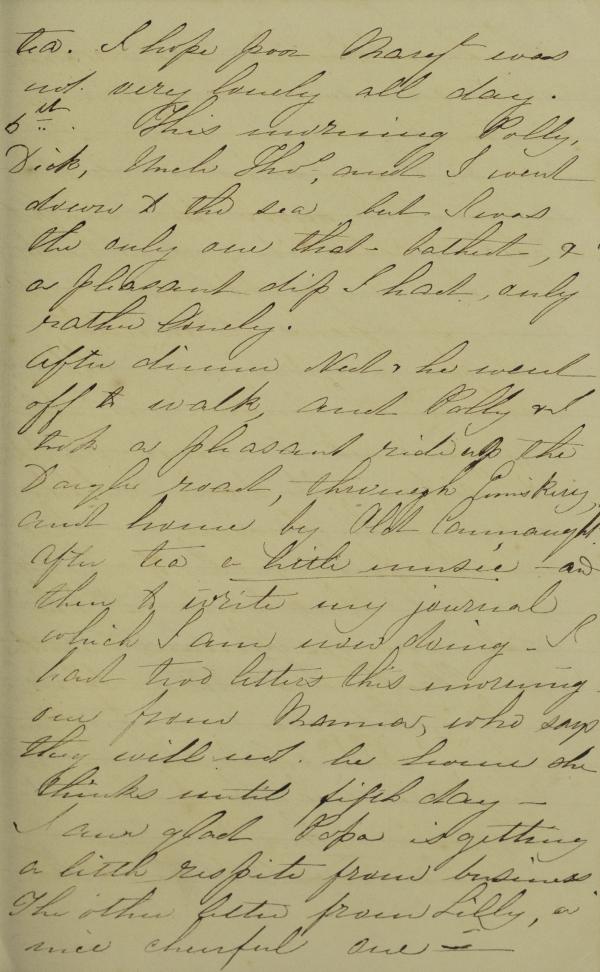 tea. I hope poor Margt was
not very lonely all day.
6th. This morning Polly,
Dick, Uncle Thos, and I went
down to the sea but I was
the only one that bathed, &
a pleasant dip I had, only
rather lonely.
After dinner Ned & he went
off to walk, and Polly & I
took a pleasant ride up the
Dargle road, through Enniskerry,
and home by Old Connaught.
After tea a little music - and
then to write my journal
which I am now doing - I
had two letters this morning -
one from Mamma, who says
they will not be home she
thinks until fifth day -
I am glad Papa is getting
a little respite from business
The other letter from Lilly, a
nice cheerful one -